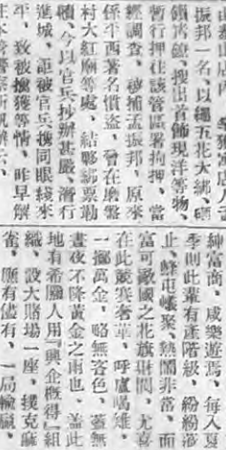 振邦一名、以繩五花大綁、
鐐銬、搜出首飾現洋等物
暫行押往該管區署拘押、當
經調查、被捕孟振邦、原來
係平西著名慣盜、曾在磨盤
村大紅廟等處、結夥綁票勒
贖、今以官兵抄辦甚嚴、潛行
進城、詎被官兵攙同眼綫來
平、致被擒獲等情、昨早解
紳富商、咸樂遊焉、每入夏
季則此輩有產階級、紛紛滋
止、蜂屯蟻聚、熱鬧非常、而
富可敵國之花旗財閥、尤喜
在此競賽奢華、呼盧喝雉、
一擲萬金、略無吝色、蓋無
晝夜不降黃金之雨也、蓋此
地有希國人用『興企槪得』組
織、設大賭場一座、撲克麻
雀、應有儘有、一局輸贏、